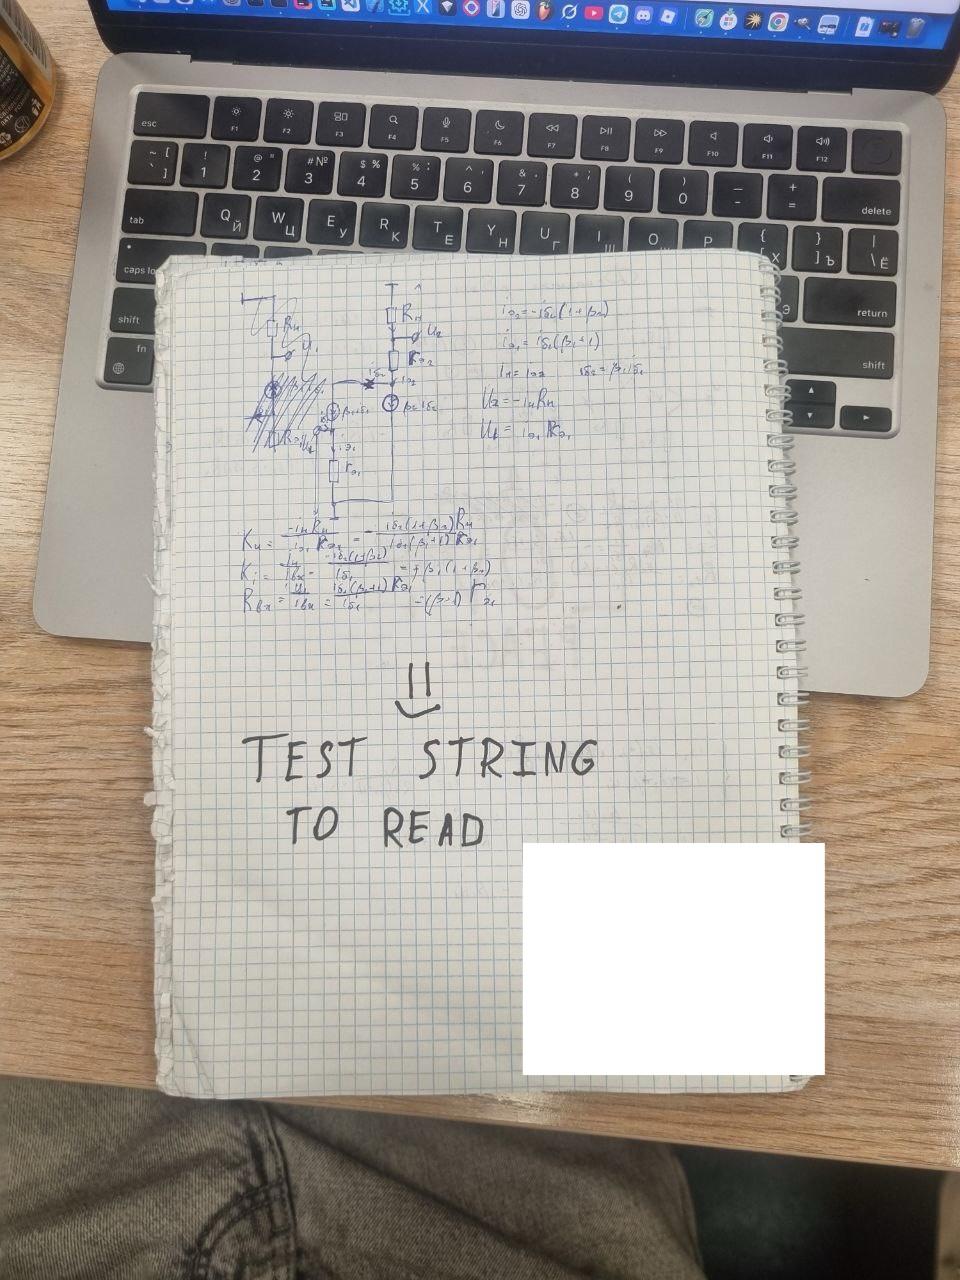 esc F1 F2 F3 F4 F5 F6 F7 F8 F9 F10 F11 F12
~ [ ` ] ! 1 @ " 2 # № 3 $ % 4 % : 5 ^ , 6 & . 7 * ; 8 ( 9 ) 0 — - + = delete
tab Q Й W Ц E У R К T Е Y Н U Г I Ш O P { [ Х } ] Ъ | \ Ё
caps lo Э return
shift shift
fn
Rн
Rн U₂
U₁ Rэ₂
iб₂ iэ₂
β₁iб₁ β₂iб₂
iэ₁
rэ₁
iэ₂=-iб₂(1+β₂)
iэ₁=iб₁(β₁+1)
iн=iэ₂ iб₂=β₁iб₁
U₂=-iнRн
U₁= iэ₁Rэ₁
Ku = -iнRн / iэ₁Rэ₁ = - iб₂(1+β₂)Rн / iб₁(β₁+1)Rэ₁
Ki = iн / iвх = -iб₂(1+β₂) / iб₁ = β₁(1+β₂)
Rвх = U₁ / iвх = iб₁(β₁+1)Rэ₁ / iб₁ = (β+1) rэ₁
TEST STRING
TO READ